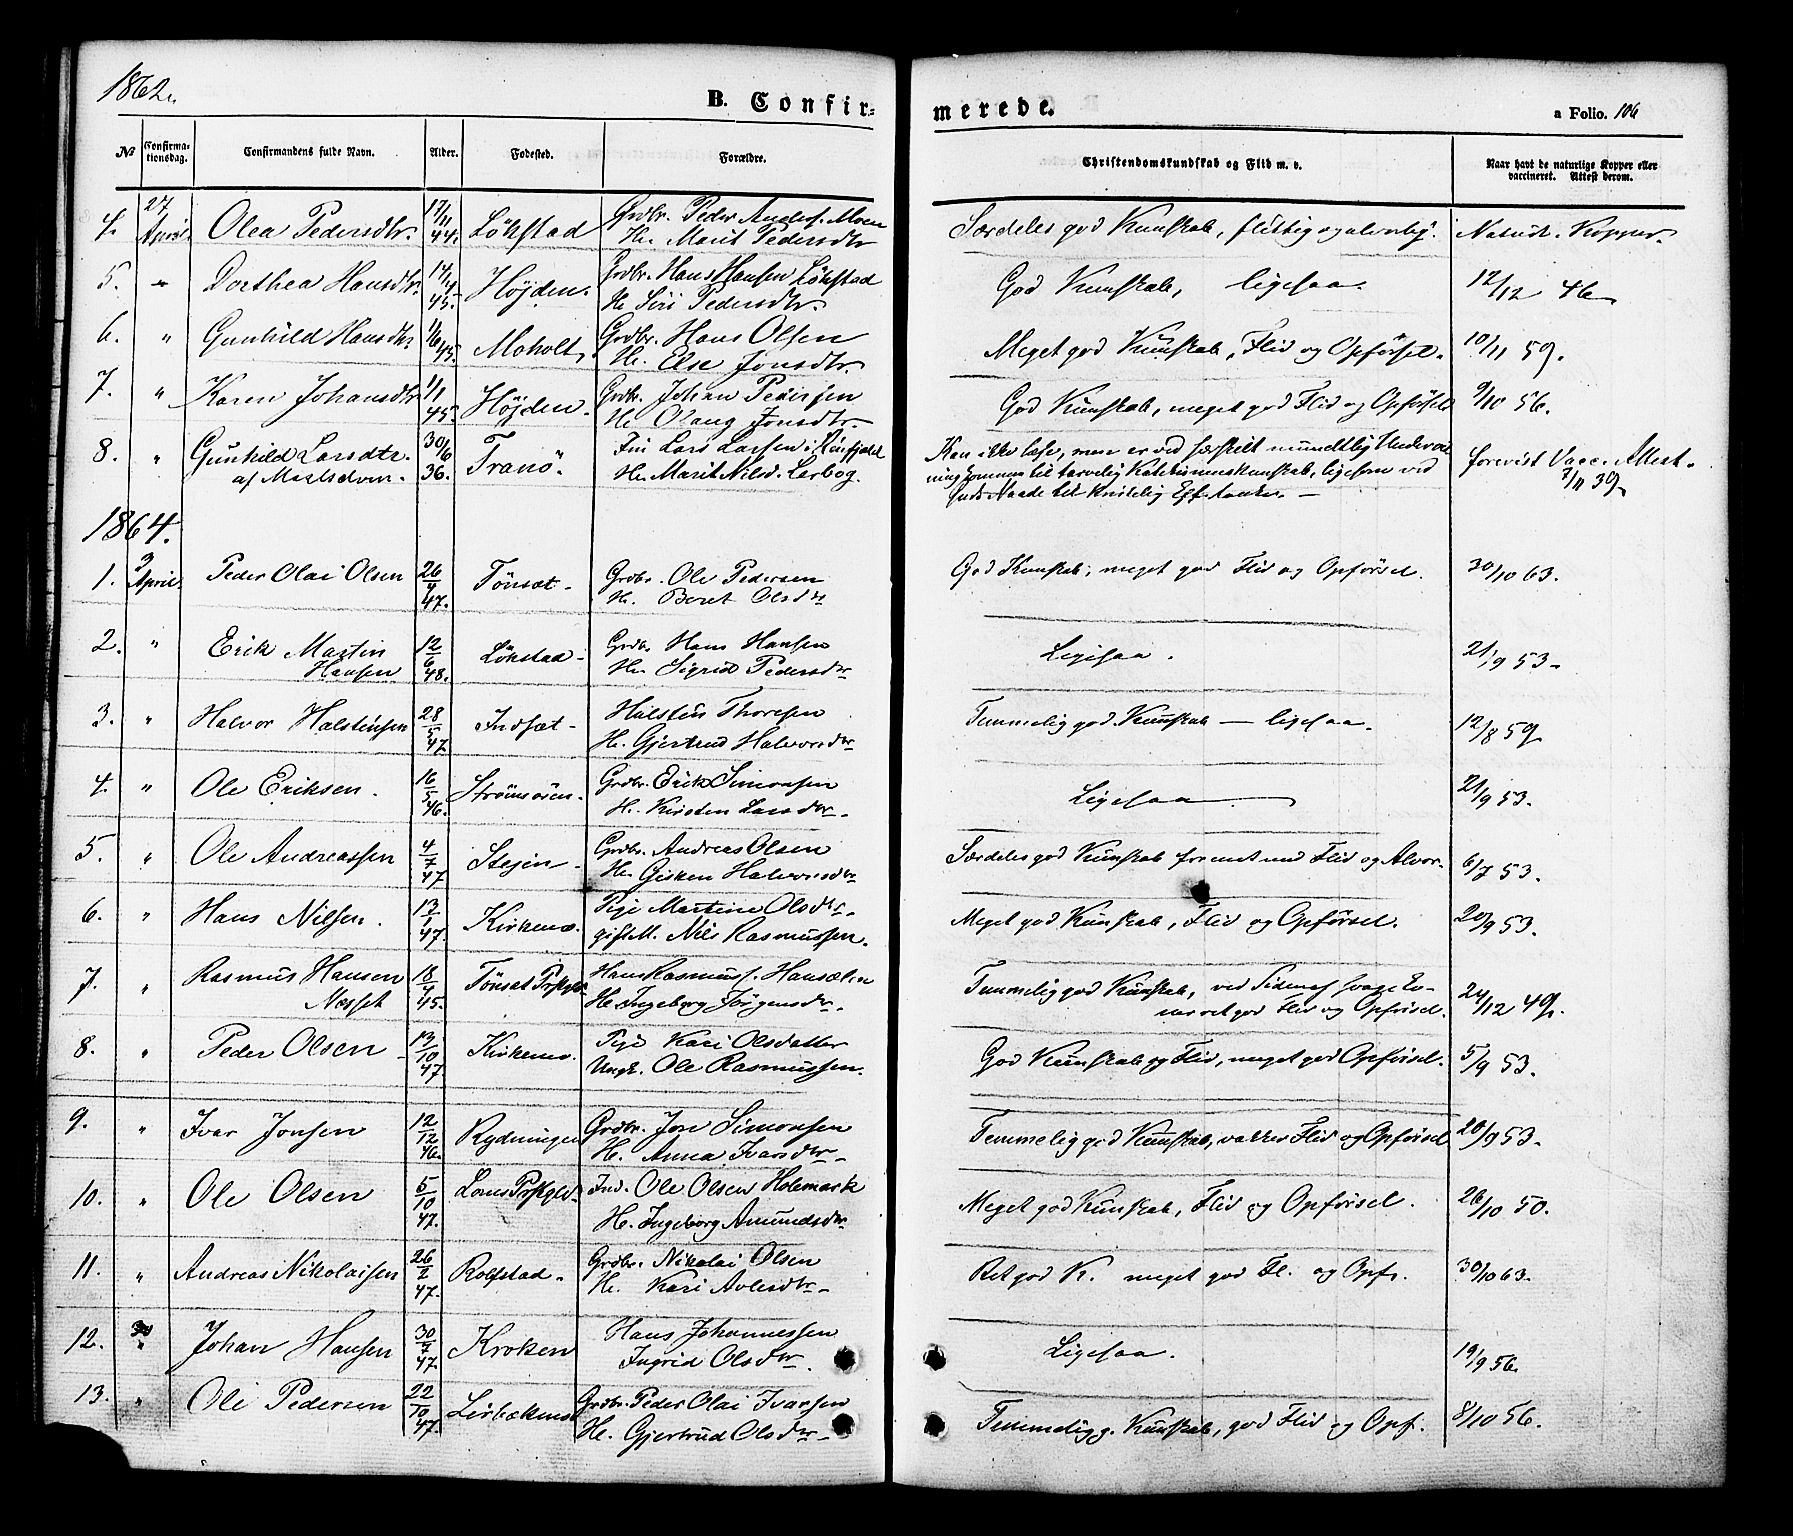 1862.
B. Confir=
merede.
a Folio. 106
No
Confirma-
tionsdag.
Confirmandens fulde Navn.
Alder.
Fødested.
Forældre.
Christendomskundskab og Flid m. v.
Naar havt de naturlige Kopper eller
vaccineret. Attest derom.
4. 27 April Olea Pedersdtr. 17/11 44. Lökstad Grdbr. Peder Anders. Moen
H. Marit Pedersdtr
Særdeles god Kunskab, flittig og alvorlig. Naturl. Kopper.
5. " Dorthea Hansdtr. 45. Højden. Grdbr. Hans Hansen Lökstad
H. Siri Pedersdtr.
God Kunskab, ligesaa. 12/12 46
6. " Gunhild Hansdtr 1/6 45. Moholt, Grdbr. Hans Olsen
H. Else Jonsdtr.
Meget god Kunskab, Flid og Opførsel. 10/11 59.
7. " Karen Johansdtr 1/1 45. Højden. Grdbr. Johan Pedersen
H. Olaug Jonsdtr.
God Kunskab, meget god Flid og Opförsel 9/10 56.
8. " Gunhild Larsdtr. 30/6 36. Tranö. Lars Larssen i
af Maalselven. H. Marit Nilsd.
Kan ikke læse, men er ved særskilt mundtlig Underviis
ning kommen til tarvelig Katekismuskunskab, ligesom ved
Guds Naade til
forevist Vacc. Attest.
7/11 39
1864.
1. 3 April Peder Olai Olsen 26/4 47. Tönset. Grdbr. Ole Pedersen
H. Beret Olsdtr
God Kunskab, meget god Flid og Opförsel. 30/10 63.
2. " Erik Martin 12/6 48. Lökstad. Grdbr. Hans Hansen
Hansen H. Sigrid Pedersdtr
Ligesaa. 21/9 53.
3. " Halvor Halstensen 28/5 47. Indset. Halsten Thoresen
H. Gjertrud Halvorsdtr
Temmelig god Kunskab — ligesaa. 12/8 59
4. " Ole Eriksen. 16/5 46. Strömsören. Grdbr. Erik Simonsen
H. Kirsten Larsdtr.
Ligesaa 21/9 53.
5. " Ole Andreassen 4/7 47 Stejen. Grdbr. Andreas Olsen
H. Gisken Halvorsdtr
Særdeles god Kunskab forenet med Flid og Alvor. 6/7 53.
6. " Hans Nilsen. 13/1 47. Kirkemo. Pige Martine Olsdtr.
gift M. Nils Rasmussen.
Meget god Kunskab, Flid og Opförsel. 20/9 53.
7. " Rasmus Hansen 18/4 45. Tönset Hans Rasmuss.
Nesset H. Ingeborg Jörgensdtr.
Temmelig god Kunskab, ved Siden af svage Ev-
ner ret god Flid og Opförsel. 24/12 49.
8. " Peder Olsen 13/10 47. Kirkemo. Pige Kari Olsdatter
Ungk. Ole Rasmussen.
God Kunskab og Flid, meget god Opförsel. 5/9 53.
9. " Ivar Jonsen 12/12 46. Rydningen Grdbr. Jon Simonsen
H. Anna Ivarsdtr.
Temmelig god Kunskab, vakker Flid og Opförsel 20/9 53.
10. " Ole Olsen 5/10 47. Loms Prstgld. Ind. Ole Olsen Holemark
H. Ingeborg Amundsdtr
Meget god Kunskab, Flid og Opförsel. 26/10 50.
11. " Andreas Nikolaisen 26/2 47. Rolfstad. Grdbr. Nikolai Olsen
H. Kari Avlesdtr.
Ret god K. meget god Fl. og Opf. 30/10 63.
12. " Johan Hansen 30/7 47. Kroken Hans Johannessen
Ingrid Olsdtr.
Ligesaa. 19/9 56.
13. " Ole Pedersen 22/10 47. Grdbr. Peder Olai Ivarsen
H. Gjertrud Olsdtr.
Temmelig g. Kunskab, god Flid og Opf. 8/10 56.